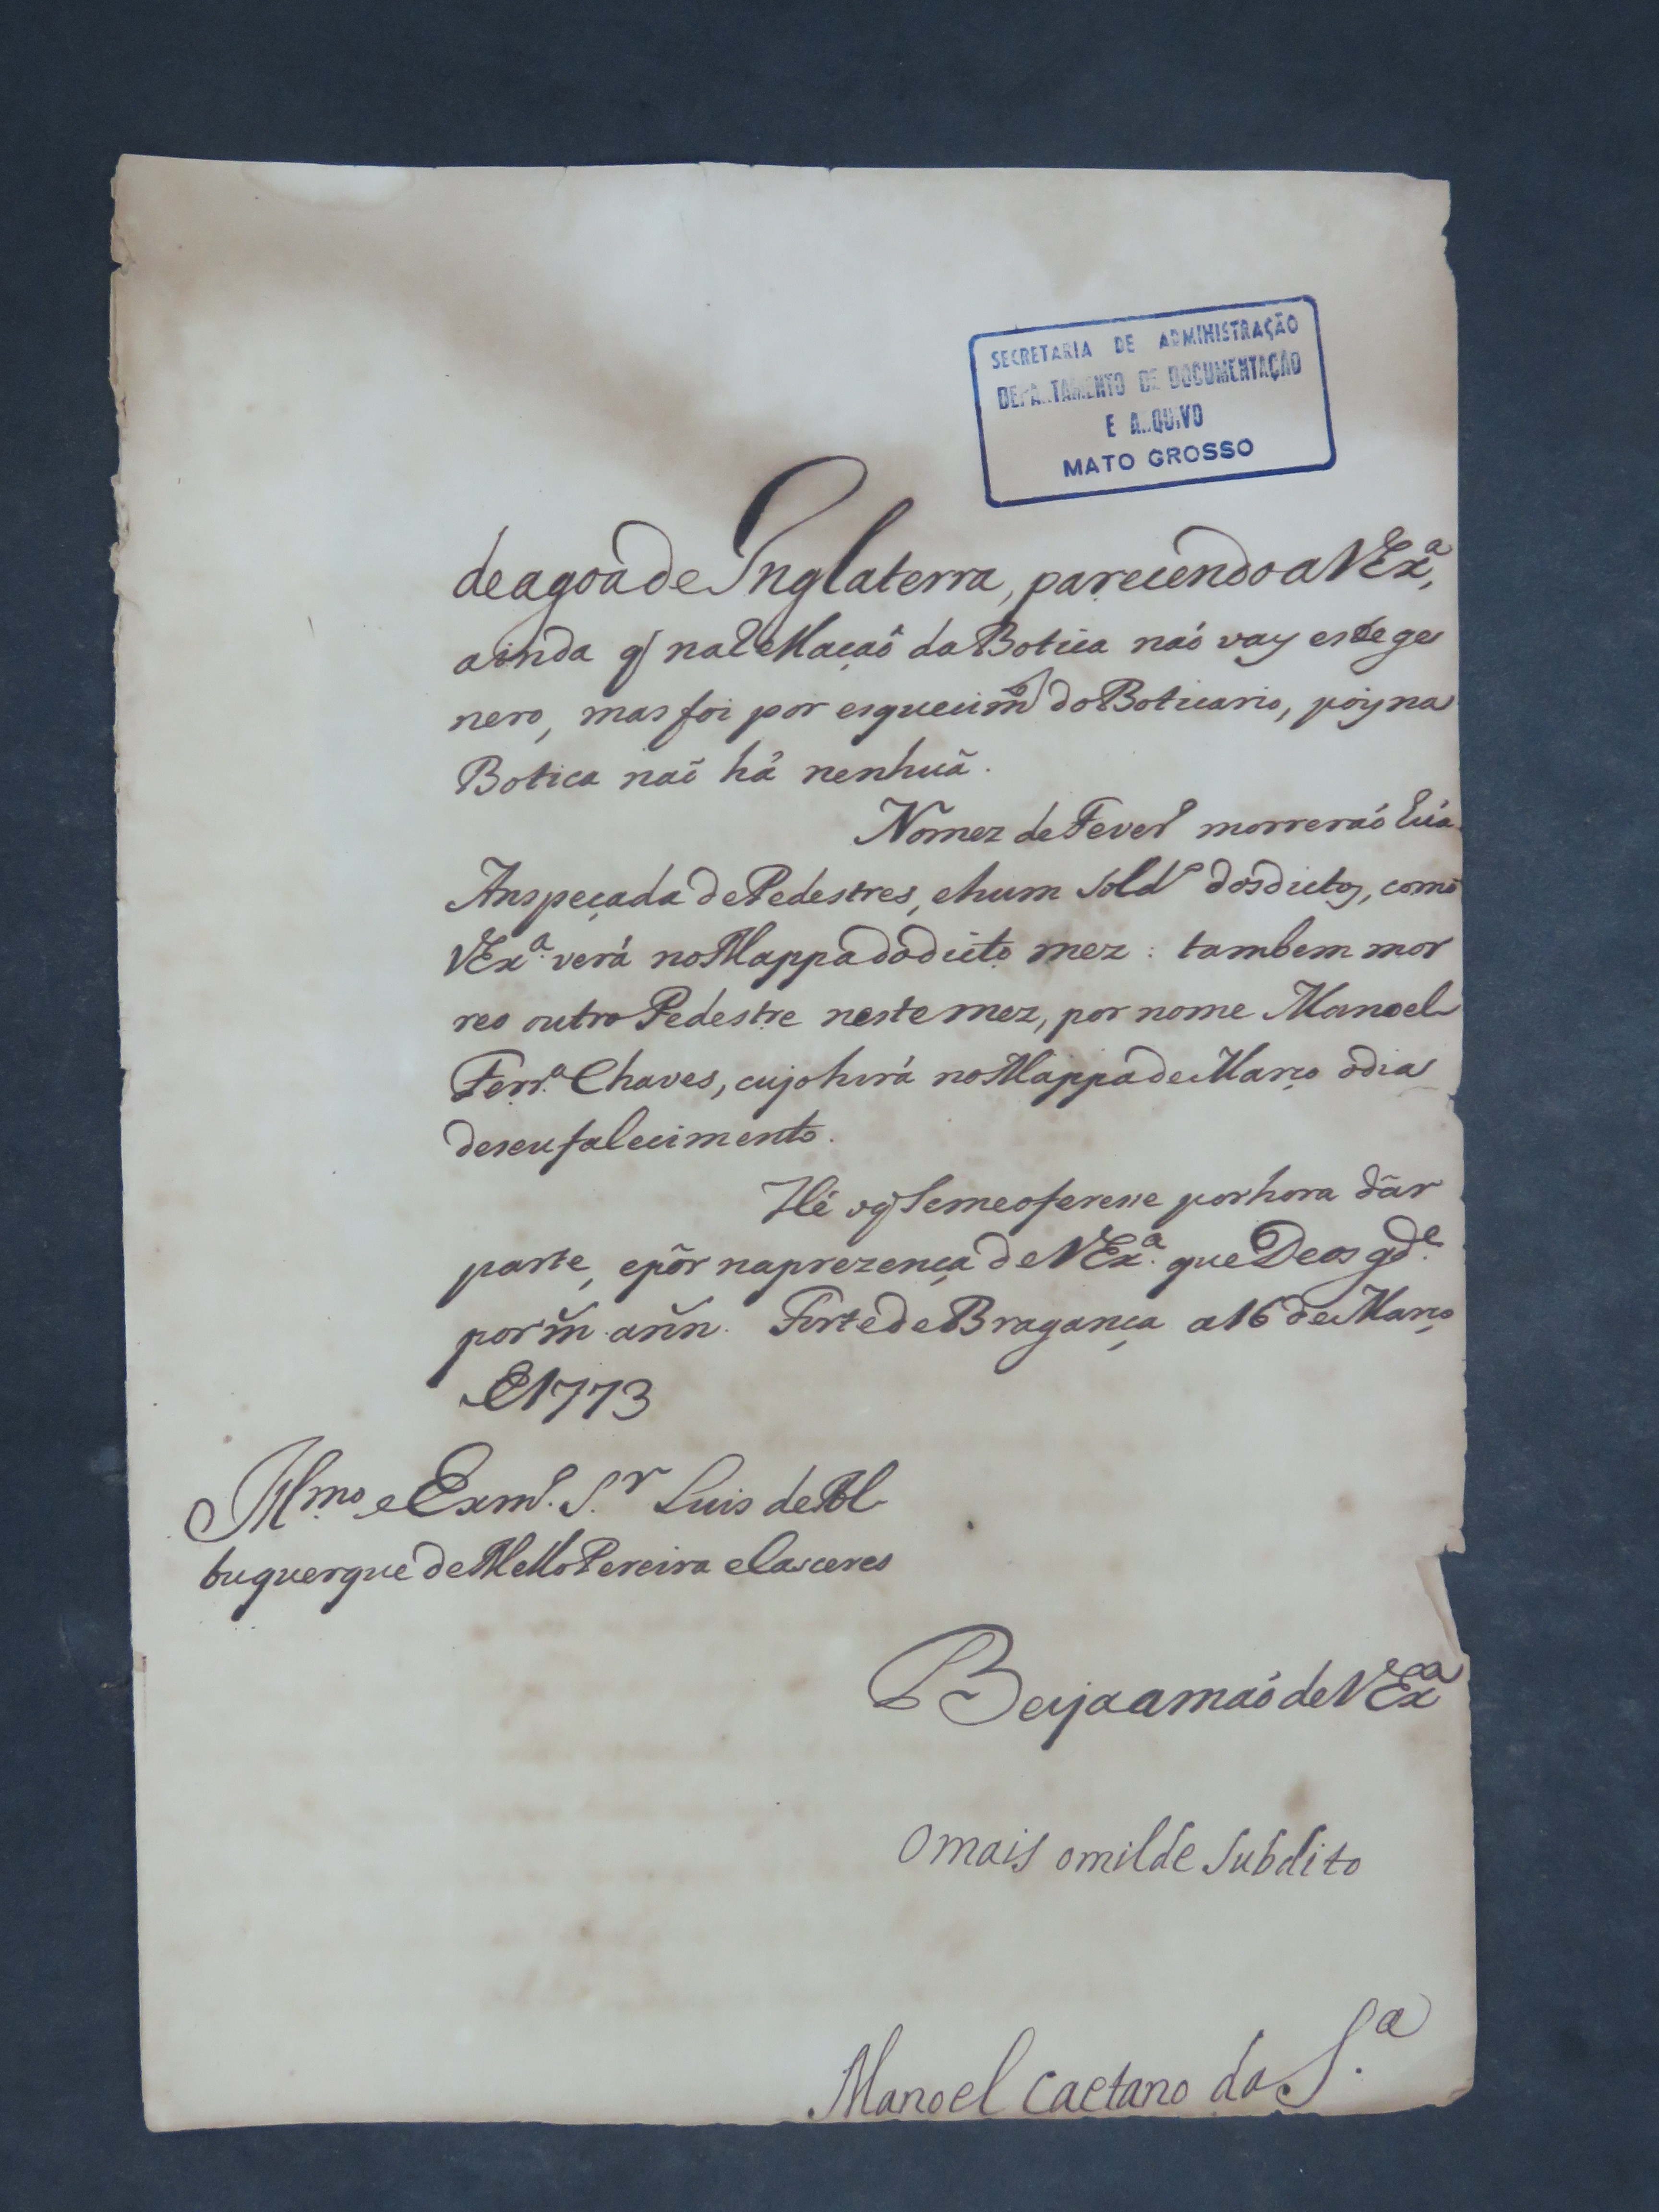 SECRETARIA DE ADMINISTRAÇÃO
DEPARTAMENTO DE DOCUMENTAÇÃO
E ARQUIVO
MATO GROSSO
de agoa de Inglaterra, parecendo a VExª,
ainda q̃ na Rellaçaõ da Botica naó vay este ge
nero, mas foi por esquecimᵗᵒ do Boticario, poiz na
Botica naõ há nenhuã.
No mez de Feverº morreraó huá
Anspeçada de Pedestres, e hum soldº dos dictos, como
VExª verá no Mappa do dicto mez: tambem mor
reo outro Pedestre neste mez, por nome Manoel
Ferrª Chaves, cujo hirá no Mappa de Março o dia
de seu falecimento.
Hé o q̃ se me oferesse por hora dár
parte, e pôr na prezença de VExª. que Deos gdᵉ.
por m̃. ann̄. Forte de Bragança a 16 de Março
de 1773
Illmo e Exmº. S.ʳ Luis de Al
buquerque de Mello Pereira e Casceres
Beija a maó de VExª
O mais omilde subdito
Manoel Caetano da S.ª